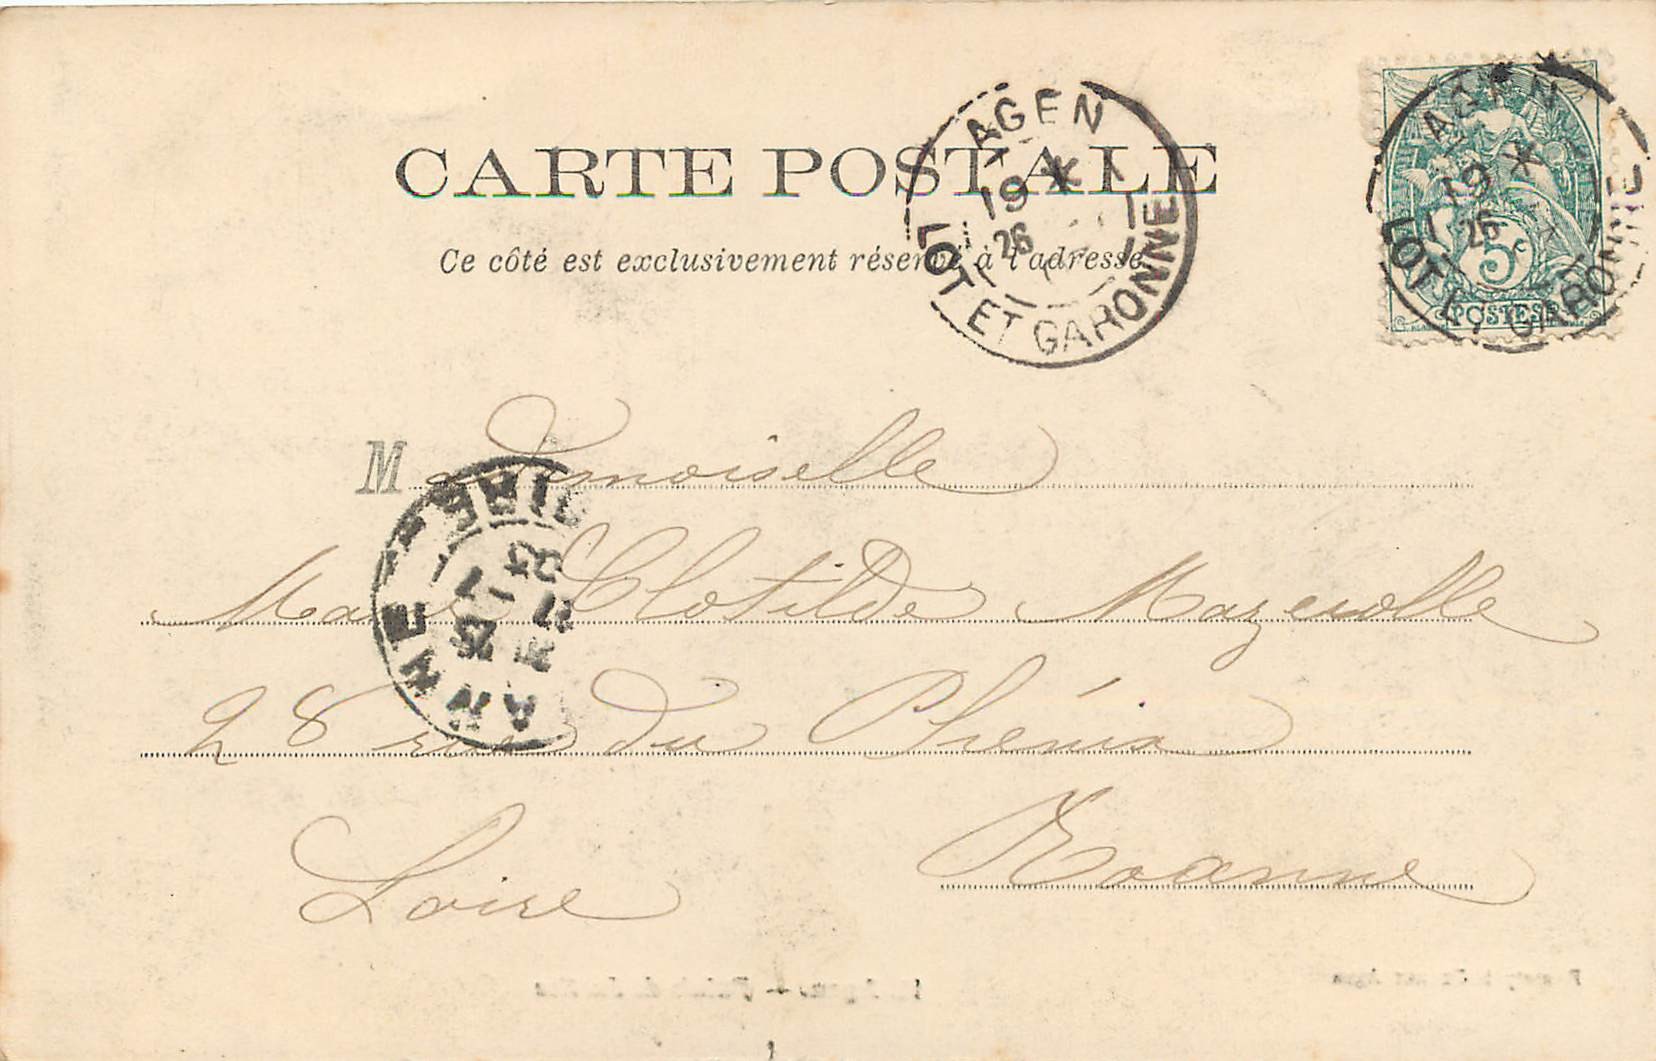 CARTE POSTALE
Ce côté est exclusivement réservé à l'adresse
AGEN
19
26
LOT ET GARONNE
AGEN
19
26
LOT ET GARONNE
5c
POSTES
Mademoiselle
Marie Clotilde Mazerolle
28 rue du Phénix
Roanne
Loire